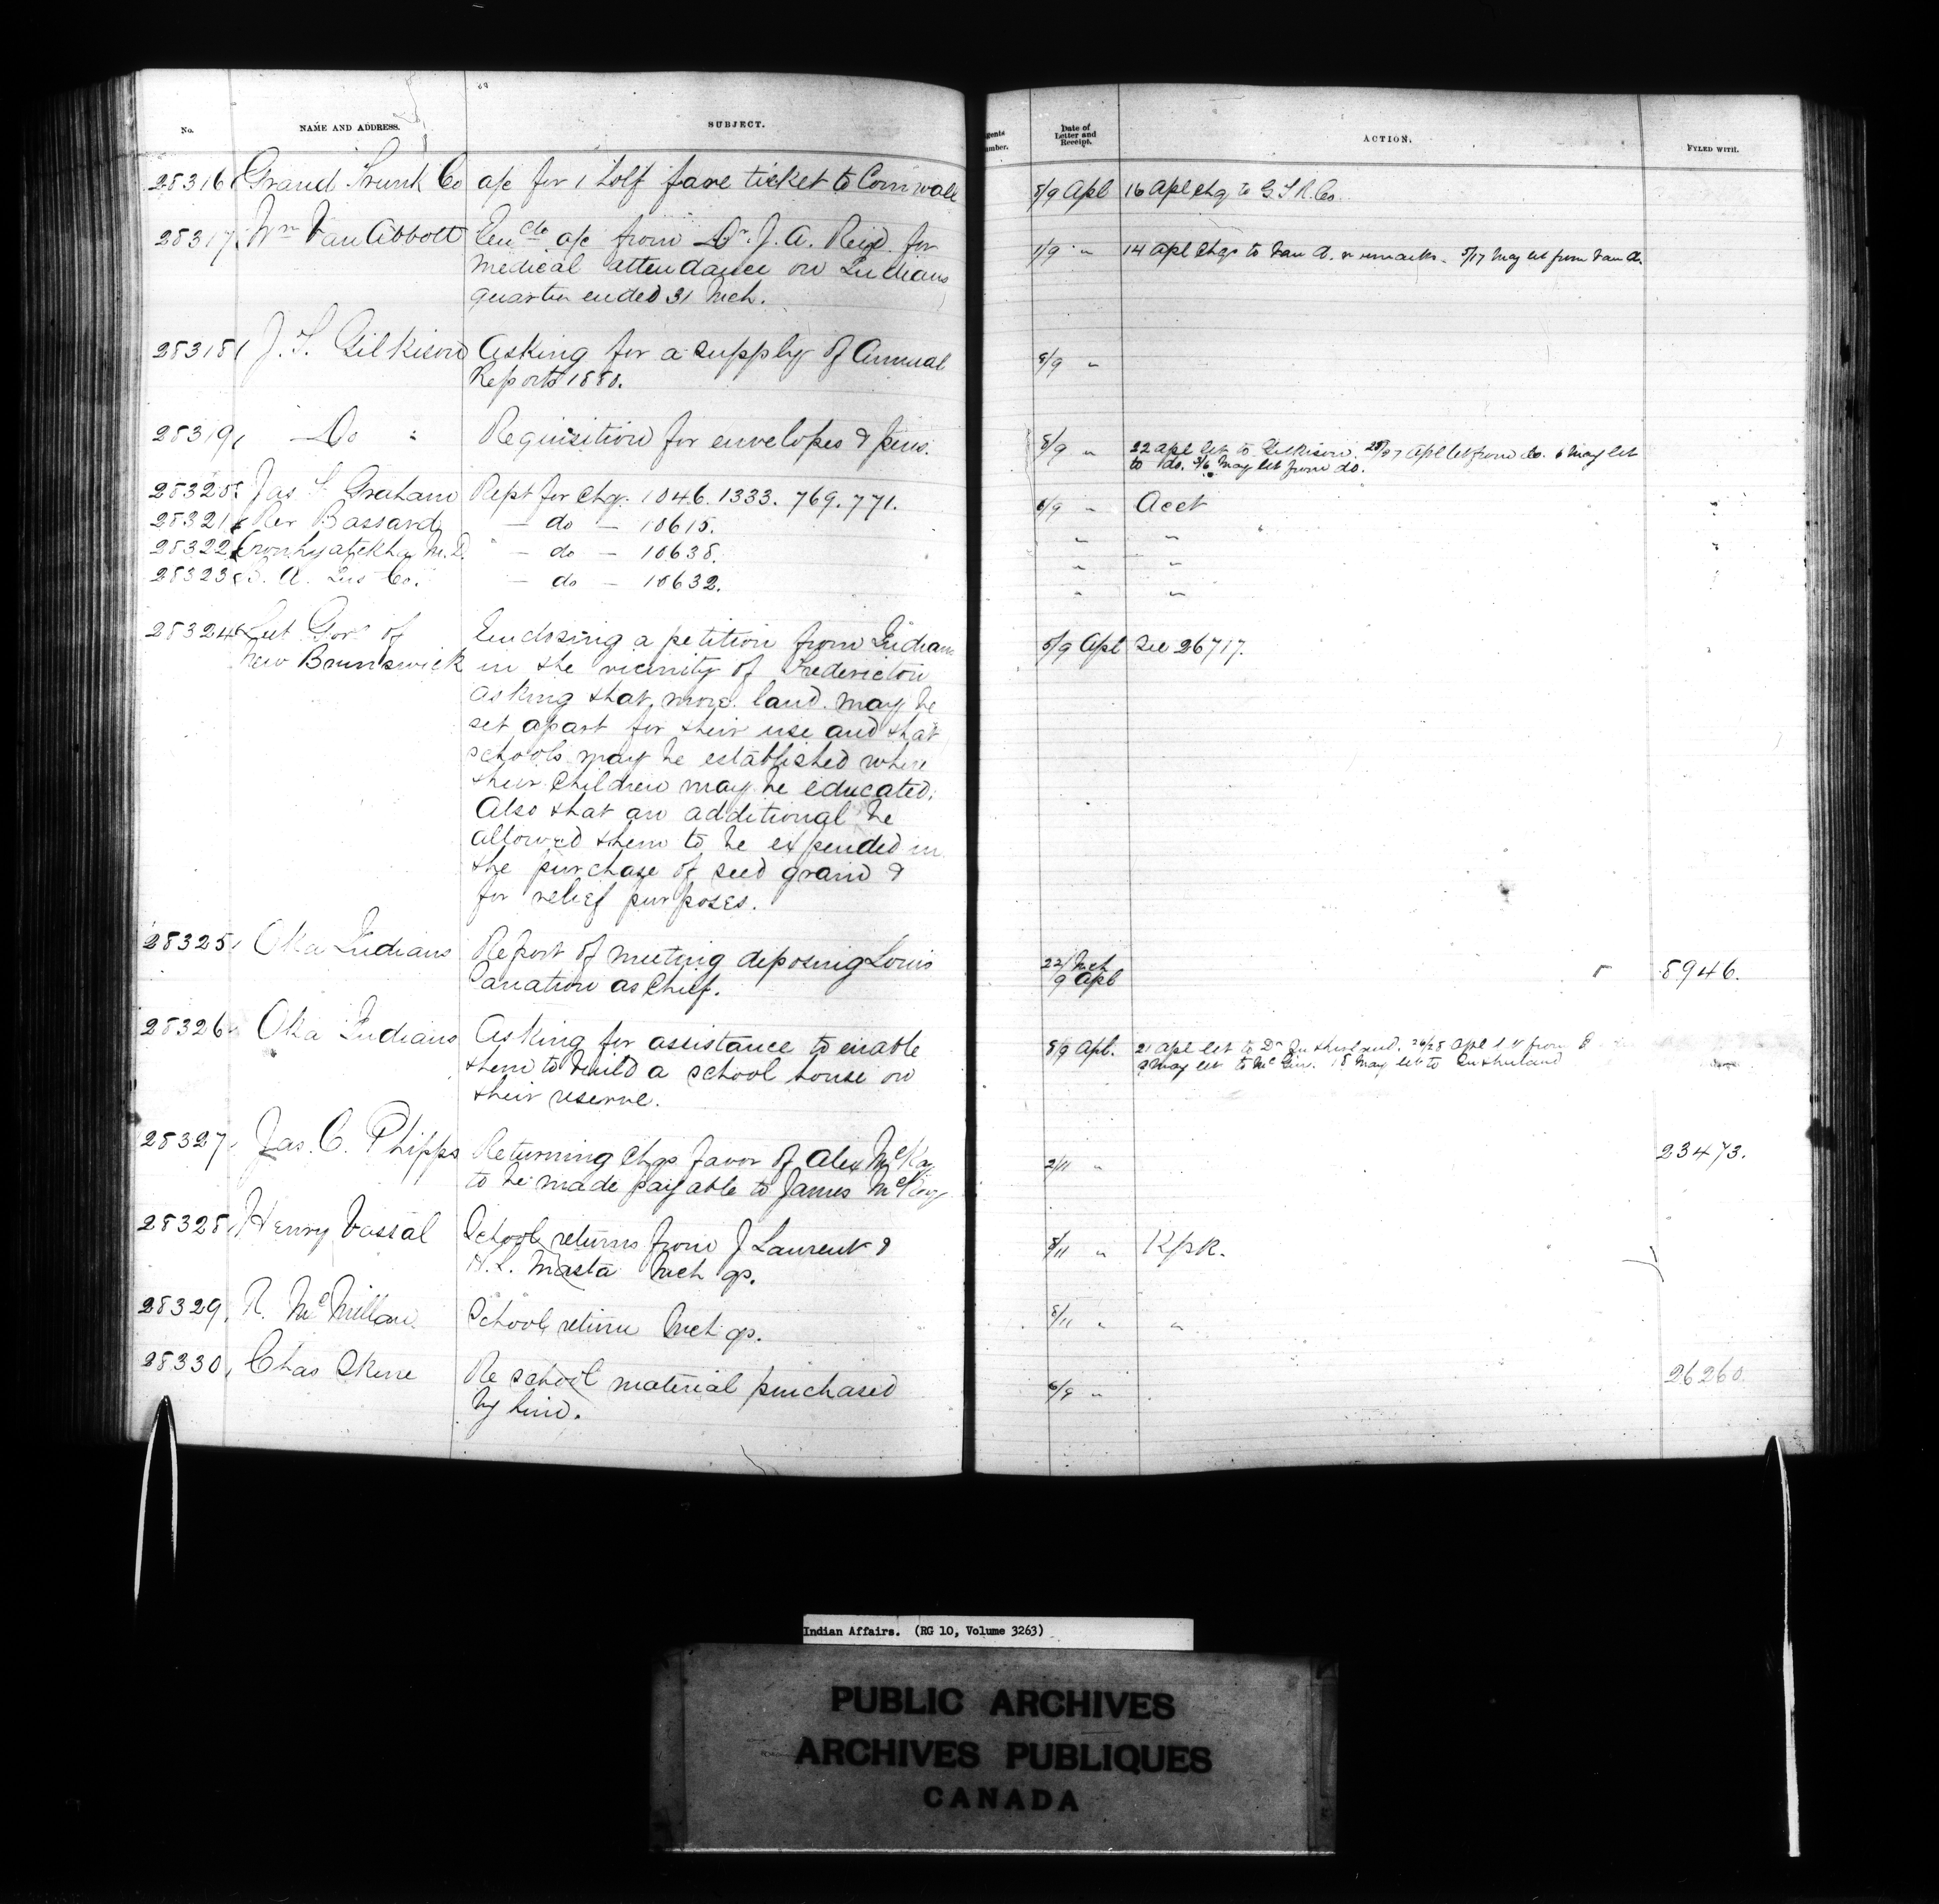 No.
NAME AND ADDRESS.
SUBJECT.
Agents Number.
Date of Letter and Receipt.
ACTION.
FYLED WITH.
28316 Grand Trunk Co a/c for 1 half fare ticket to Cornwall 8/9 Apl 16 Apl chq to G T R. Co.
28317 Wm Van Abbott Encle a/c from Dr. J. A. Reid for 1/9 " 14 Apl Chqs to Van A. & remarks. 5/17 May let from Van A.
medical attendance on Indians
quarter ended 31 Mch.
28318 J. T. Gilkison Asking for a supply of Annual 8/9 "
Reports 1880.
28319 Do : Requisition for envelopes & pens. 8/9 " 22 Apl let to Gilkison. 25/27 Apl let from do. 6 May let
to do. 3/6 May let from do.
28320 Jas S. Graham Rept for Chq. 1046. 1333. 769. 771. 6/9 " Acct
28321 Rev Bassard — do — 10615. " "
28322 Oronhyatekha M.D. — do — 10638. " "
28323 B. A. Ins Co. — do — 10632. " "
28324 Lut Govr of Enclosing a petition from Indians 5/9 Apl See 26717.
New Brunswick in the vicinity of Fredericton
asking that more land may be
set apart for their use and that
schools may be established where
their children may be educated.
Also that an additional be
allowed them to be expended in
the purchase of seed grain &
for relief purposes.
28325 Oka Indians Report of meeting deposing Louis 22/ Mch 9 Apl 8946.
Canation as Chief.
28326 Oka Indians Asking for assistance to enable 8/9 Apl. 21 Apl let to Dr Sutherland. 26/28 Apl from
them to build a school house on 9 May let to McGirr. 18 May let to Sutherland
their reserve.
28327 Jas. C. Phipps Returning Chqs favor of Alex McKay 2/11 " 23473.
to be made payable to James McKay
28328 Henry Vassal School returns from J Laurent & 8/11 " K/p R.
H. L. Masta Mch qr.
28329 R. McMillan School return Mch qr. 8/11 " "
28330 Chas Skene Re school material purchased 6/8 " 26260
by him.
Indian Affairs. (RG 10, Volume 3263)
PUBLIC ARCHIVES
ARCHIVES PUBLIQUES
CANADA